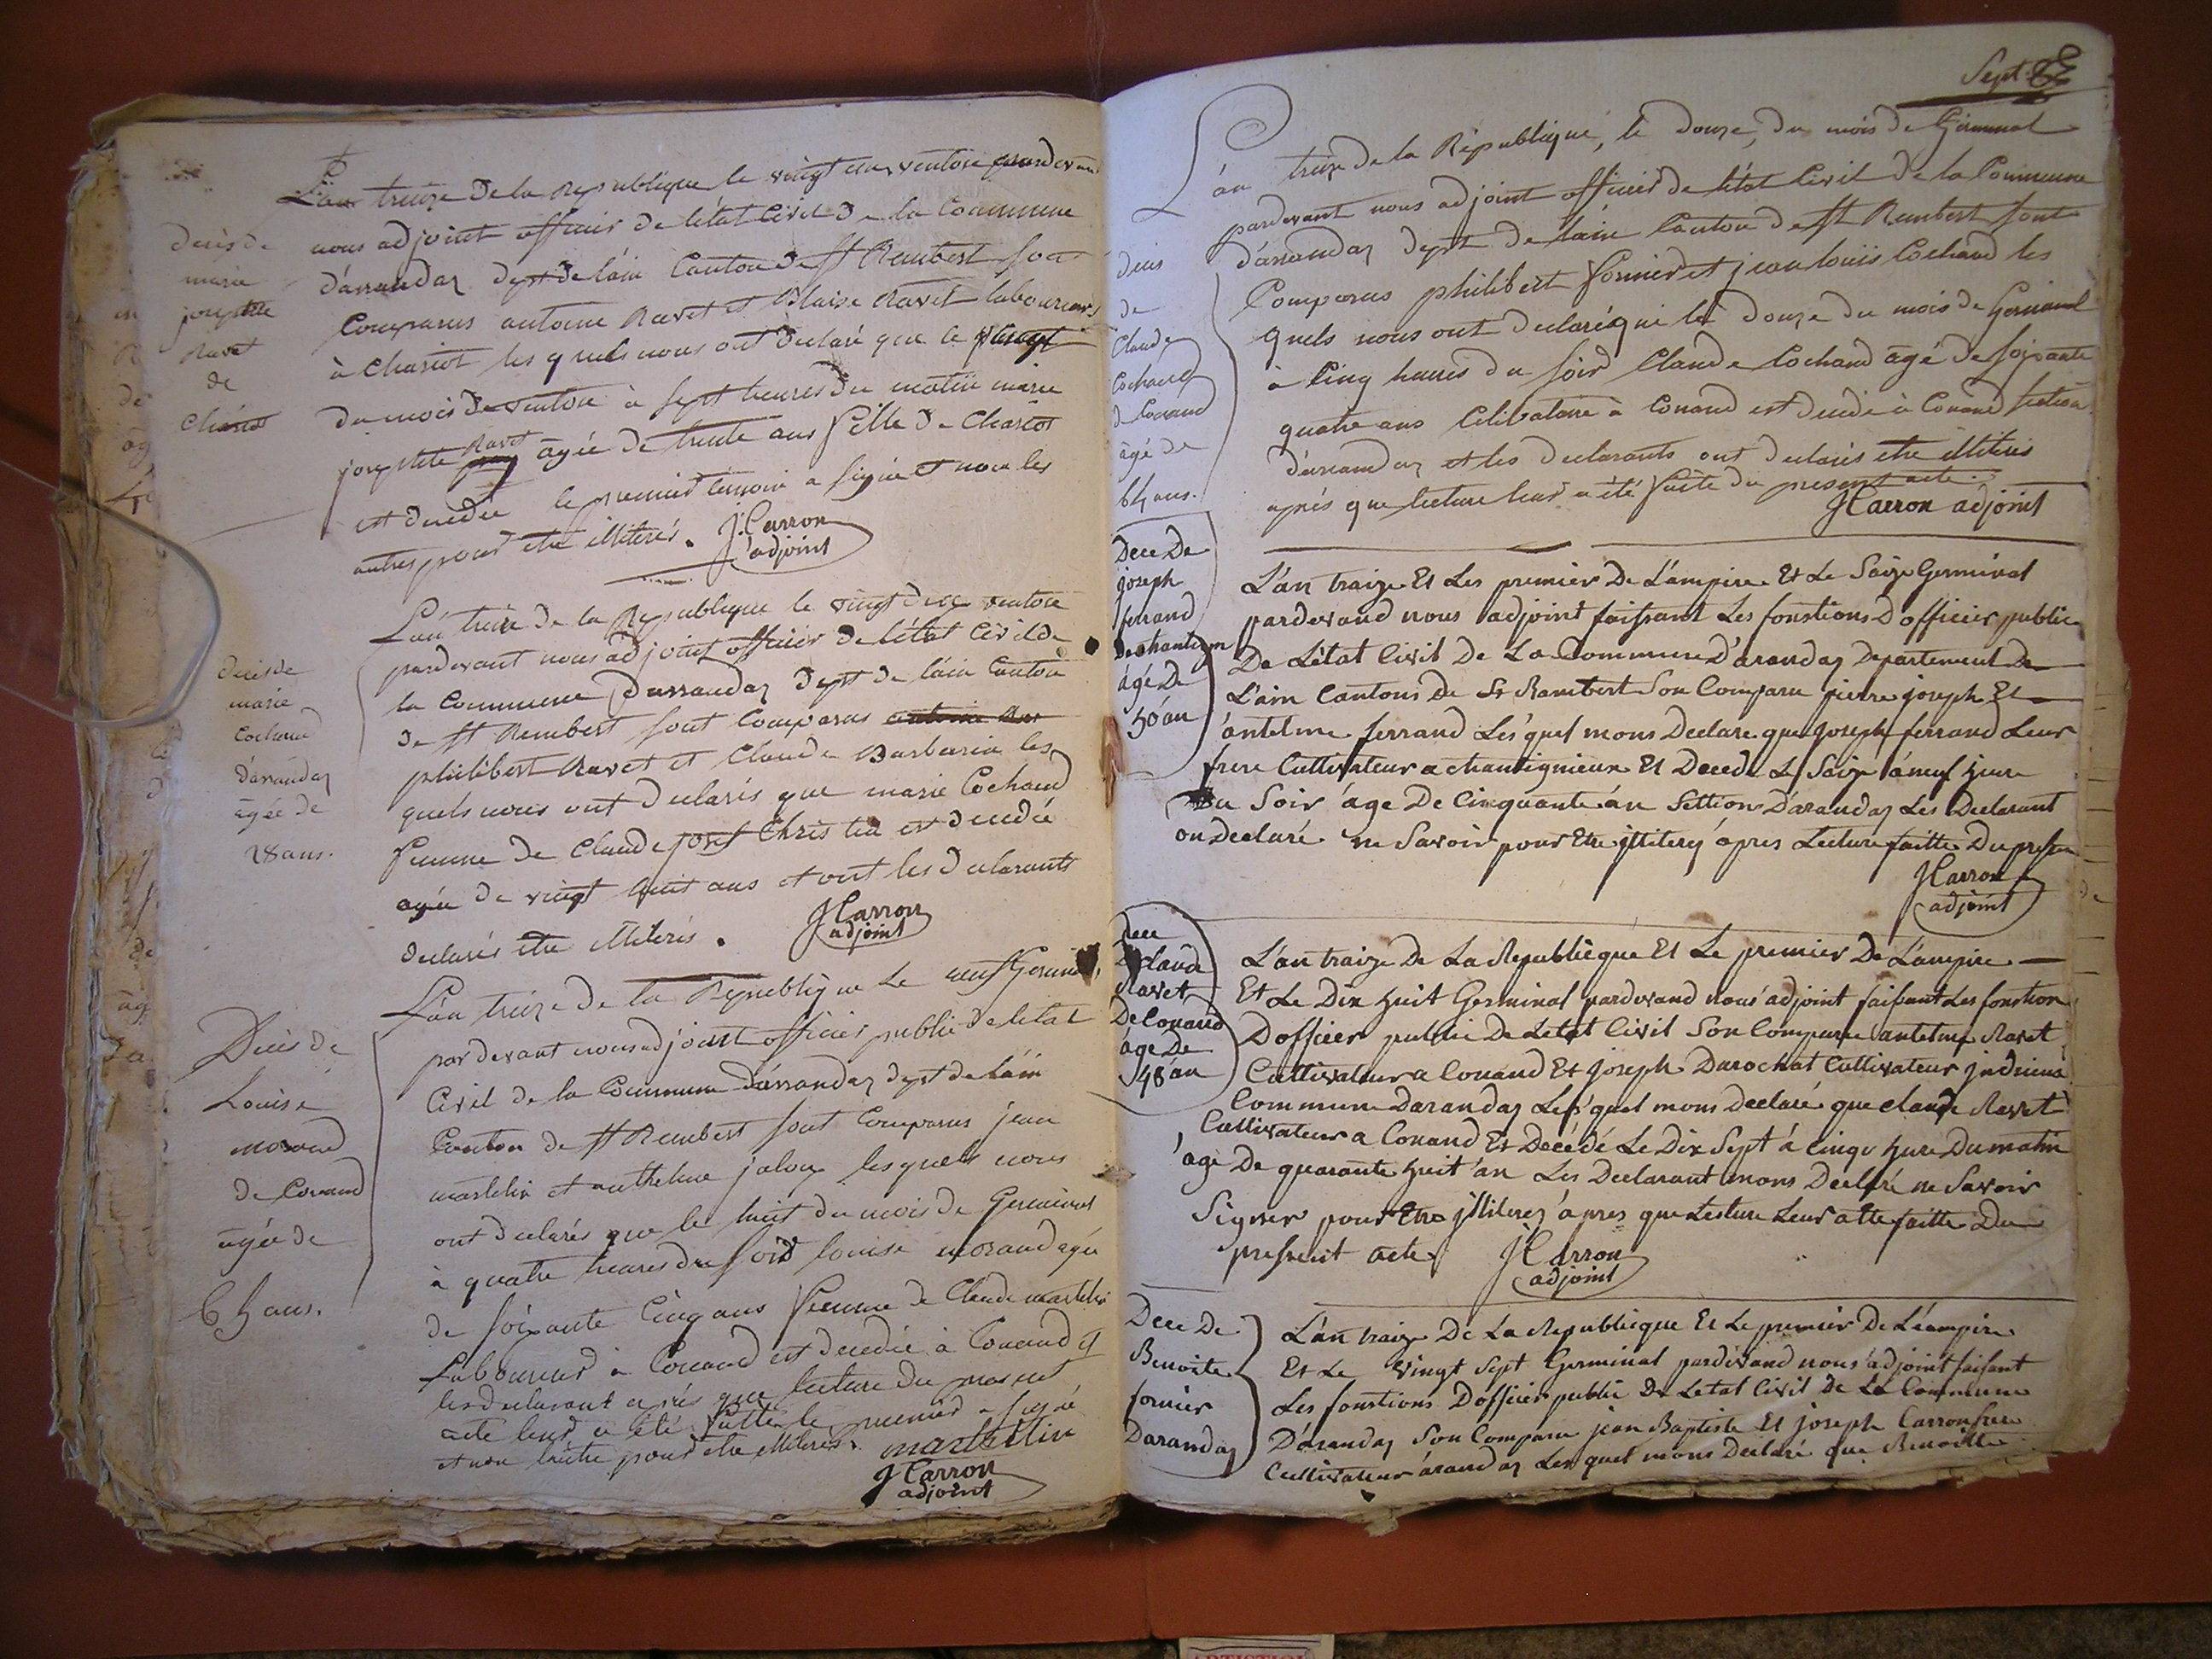 décès de
marie
josephte
Ravet
de
Chariot
L'an treize de la Republique le vingt un ventose pardevant
nous adjoint officier de l'état Civil de la Commune
d'arrandaz dept de l'ain Canton de St Rambert sont
Comparus antoine Ravet et Blaise Ravet laboureurs
à Chariot les quels nous ont declaré que le vingt
du mois de ventose à sept heures du matin marie
josephte Ravet âgée de trente ans fille de Chariot
est decedée le premier temoin a signé et non les
autres pour etre illiterés.
J. Carron
adjoint
décès de
marie
Cochand
d'arrandaz
âgée de
28 ans.
L'an treize de la Republique le vingt deux ventose
pardevant nous adjoint officier de l'état Civil de
la Commune d'arrandaz dept de l'ain Canton
de St Rambert sont Comparus antoine Rav
philibert Ravet et Claude Barbarin les
quels nous ont declarés que marie Cochand
femme de Claude josef Christin est decedée
agée de vingt huit ans et ont les declarants
declarés etre illiterés.
J Carron
adjoint
Décès de
Louise
morand
de Conand
agée de
65 ans.
L'an treize de la Republique Le neuf Germinal
par devant nous adjoint officier public de l'etat
Civil de la Commune d'arrandaz dept de l'ain
Canton de St Rambert sont Comparus jean
martelin et anthelme jaloux lesquels nous
ont declarés que le huit du mois de Germinal
à quatre heures du soir louise morand agée
de soixante Cinq ans femme de Claude martelin
Laboureur à Conand est decedée à Conand et
les declarant après que lecture du present
acte leur a été faitte le premier a signé
et non l'autre pour etre illiterés. martellin
J Carron
adjoint
Sept.
deces
de
Claude
Cochand
de Conand
âgé de
64 ans.
L'an treize de la République, le douze, du mois de Germinal
pardevant nous adjoint officier de l'état Civil de la Commune
d'arrandaz dept de l'ain Canton de St Rambert sont
Comparus philibert fornier et jean louis Cochand les
quels nous ont declarés que le douze du mois de Germinal
à Cinq heures du soir Claude Cochand âgé de soixante
quatre ans Celibataire à Conand est decedé à Conand section
d'arrandaz et les declarants ont declarés etre illiterés
après que lecture leur a été faite du present acte.
J Carron adjoint
Dece De
joseph
ferrand
De chantignieu
âgé De
50 an
L'an traize Et Les premier De L'ampire Et Le Saize Germinal
pardevand nous adjoint faissant Les fonstions D officier public
De L'état Civil De La Commune D'arandaz Departement De
L'ain Cantons de St Rambert Son Comparu pierre joseph Et
antelme ferrand Les'quel mons Declare que Joseph ferrand Leur
frere Cultivateur a chantignieux Et Decede Le Saize à neuf hure
Du Soir âge De Cinquante án Settions D'arandaz Les Declarant
on declaré ne Savoir pour Etre illiteré âpres Lecture faitte Du presen
J Carron
adjoint
Dece
De claude
Ravet
De Conand
âge De
48 an
L'an traize De La Republicque Et Le premier De L'ampire
Et Le Dix huit Germinal pardevand nous adjoint faissant Les fonstion
D officier public De L'etat Civil Son Comparu antelme Ravet
Cultivateur a Conand Et joseph Durochat Cultivateur
Commune Darandaz Les'quel mons Declaré que claude Ravet
Cultivateur a Conand Et Décédé Le Dix Sept á Cinqu hure Du matin
áge De quarante huit án Les Declarant mons Declaré ne Savoir
Signer pour Etre illiterez ápres que Lesture Leur a Ete faitte Du
pressent acte.
J Carron
adjoint
Dece De
Benoite
fornier
Darandaz
L'an traize De La Republicque Et Le premier De L'éampire
Et Le Vingt Sept Germinal pardevand nous adjoint faisant
Les fonstions D officier public De L'etat Civil De La Commune
D'árandaz Son Comparu jean Baptiste Et joseph Carron frere
Cultivateur árandaz Les quel mons Declaré que Benoitte